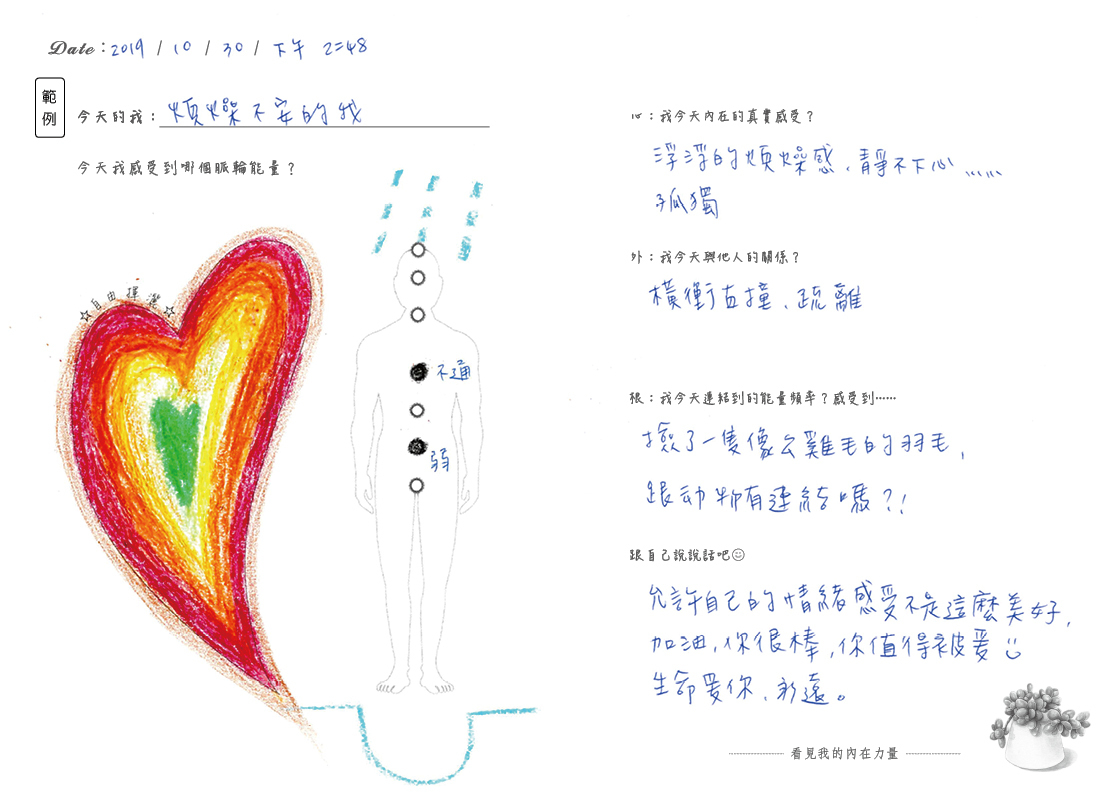 Date：2019 / 10 / 30 / 下午 2:48
範例
今天的我：煩燥不安的我
今天我感受到哪個脈輪能量？
☆自由揮灑☆
不通
弱
心：我今天內在的真實感受？
浮浮的煩燥感，靜不下心……
孤獨
外：我今天與他人的關係？
橫衝直撞、疏離
根：我今天連結到的能量頻率？感受到……
撿了一隻像公雞毛的羽毛，
跟动物有連結嗎？！
跟自己說說話吧☺
允許自己的情緒感受不是這麼美好，
加油，你很棒，你值得被愛☺
生命愛你、永遠。
看見我的內在力量